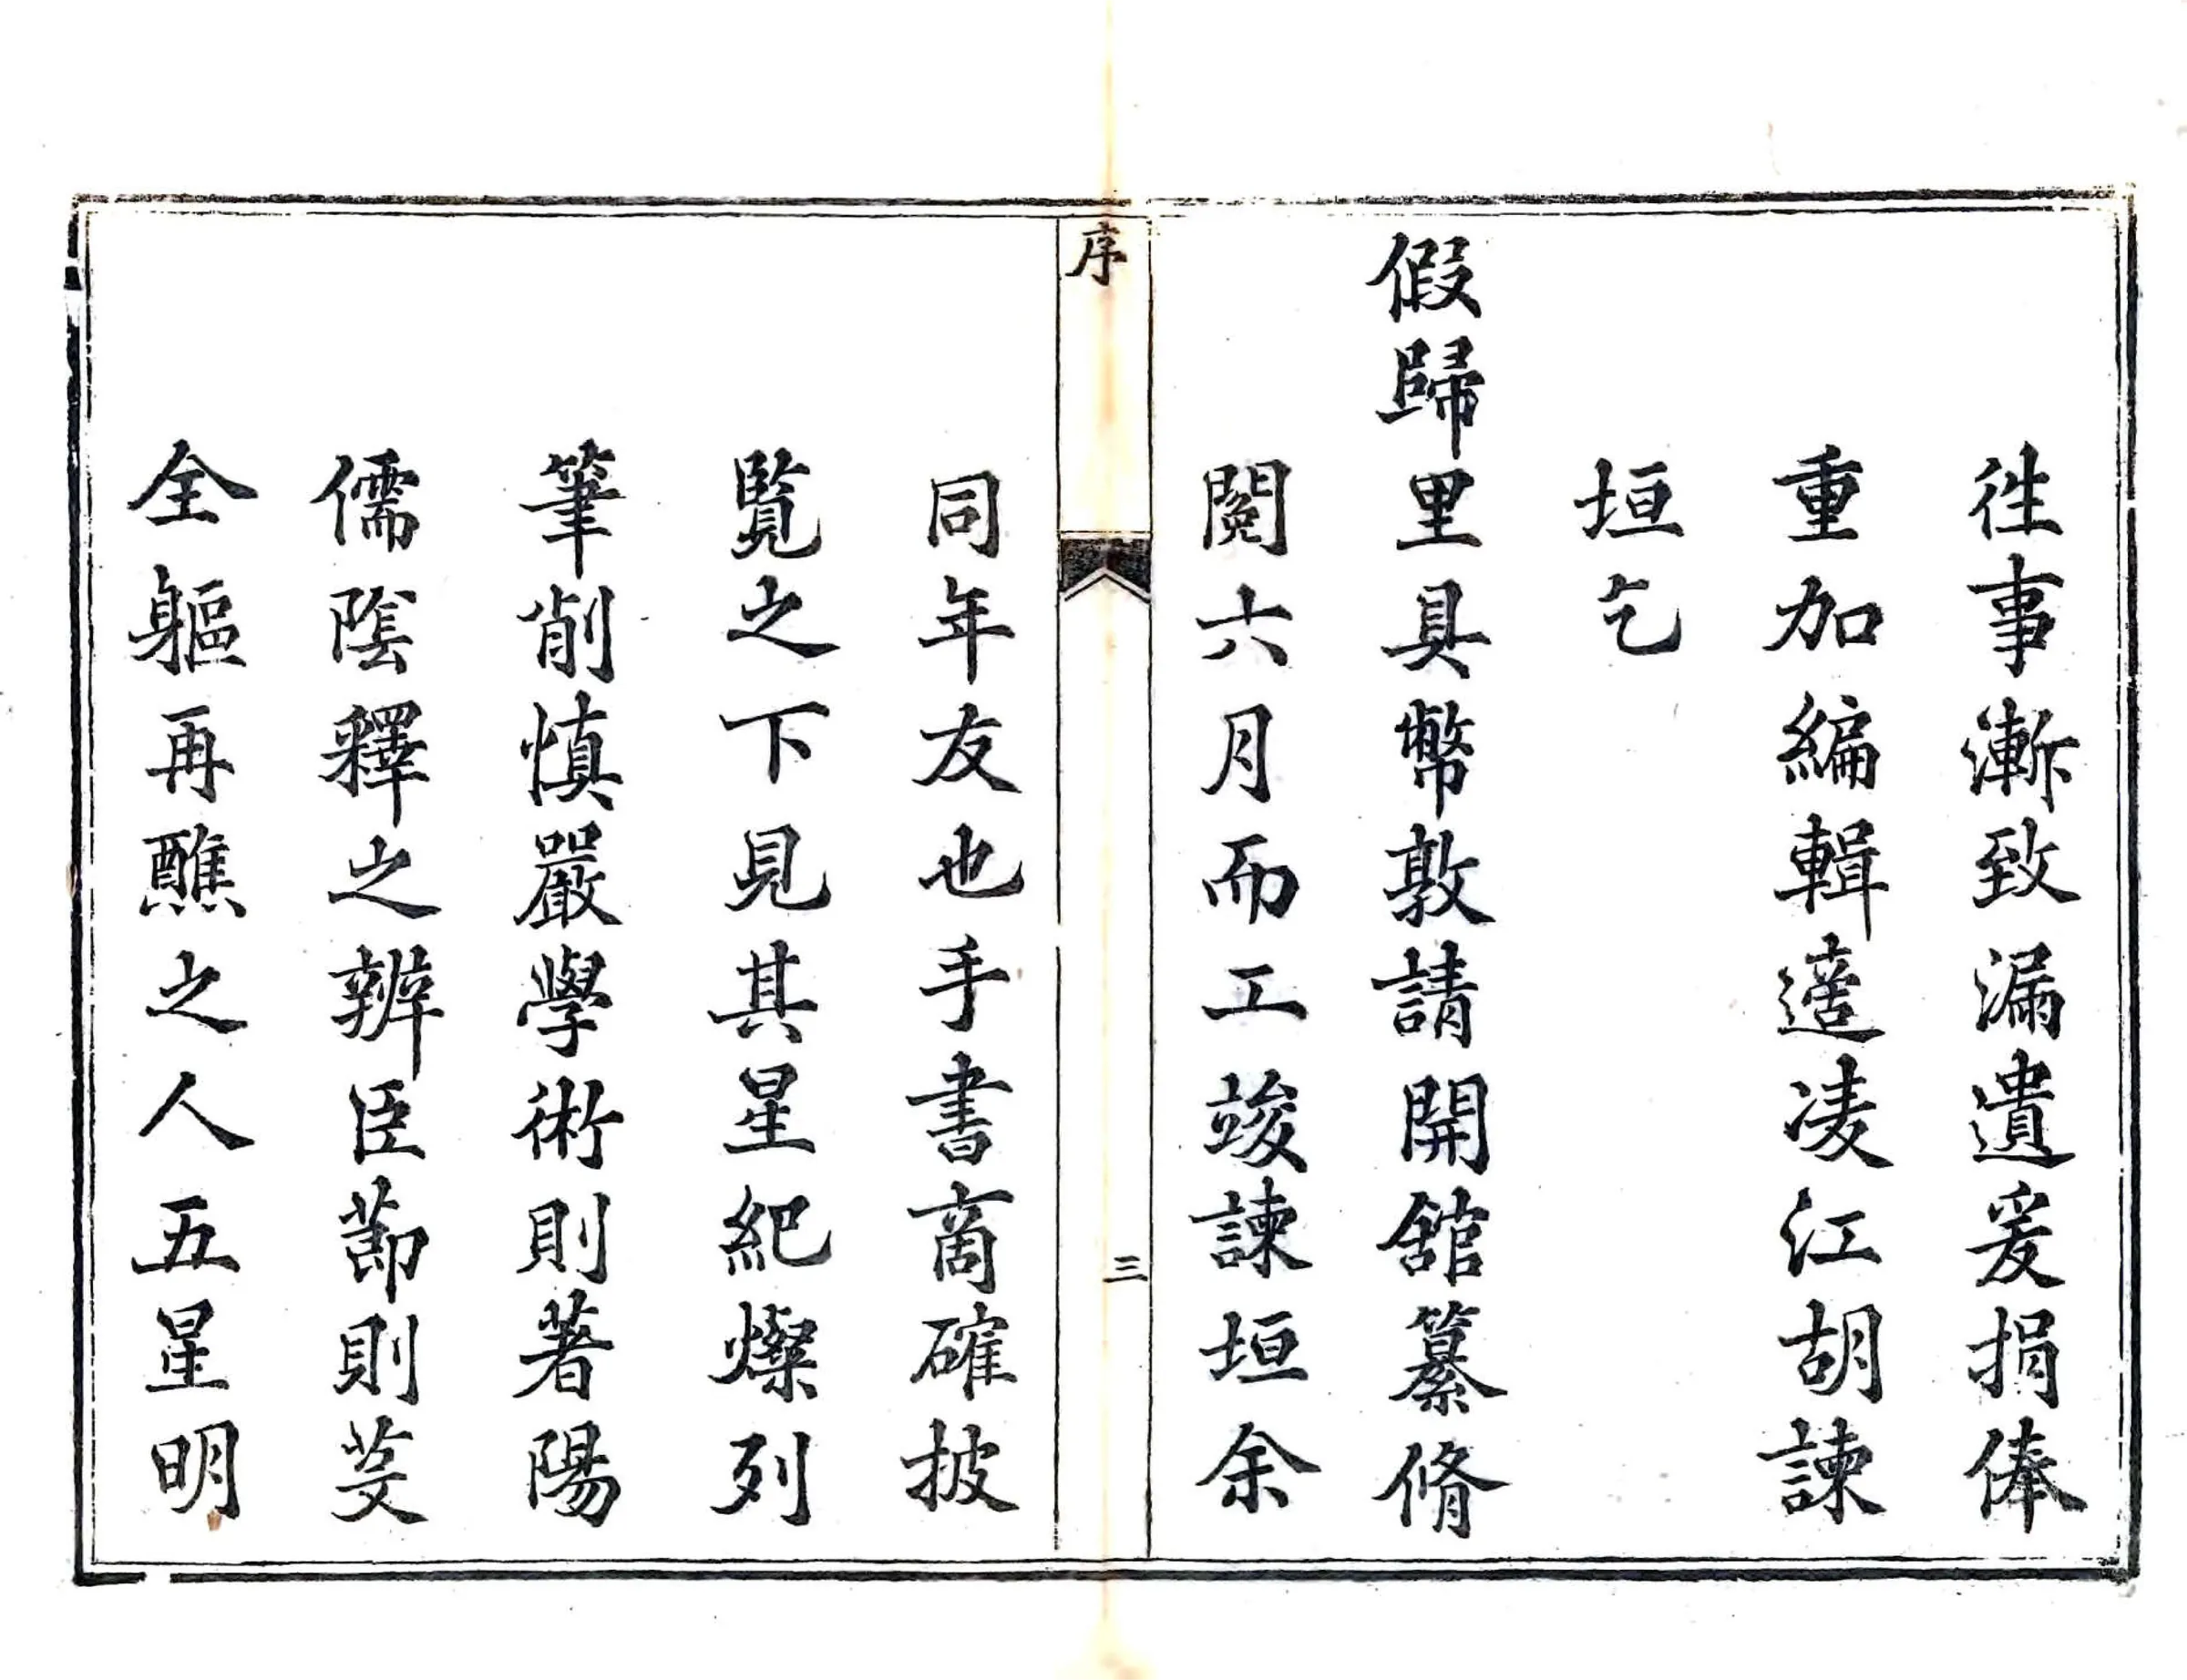 徃事漸致漏遺爰捐俸
重加編輯適淩江胡諫
垣乞
假歸里具幣敦請開舘纂脩
閱六月而工竣諫垣余
序
三
同年友也手書商確披
覧之下見其星紀燦列
筆削慎嚴學術則著陽
儒陰釋之辨臣節則芟
全軀再醮之人五星明